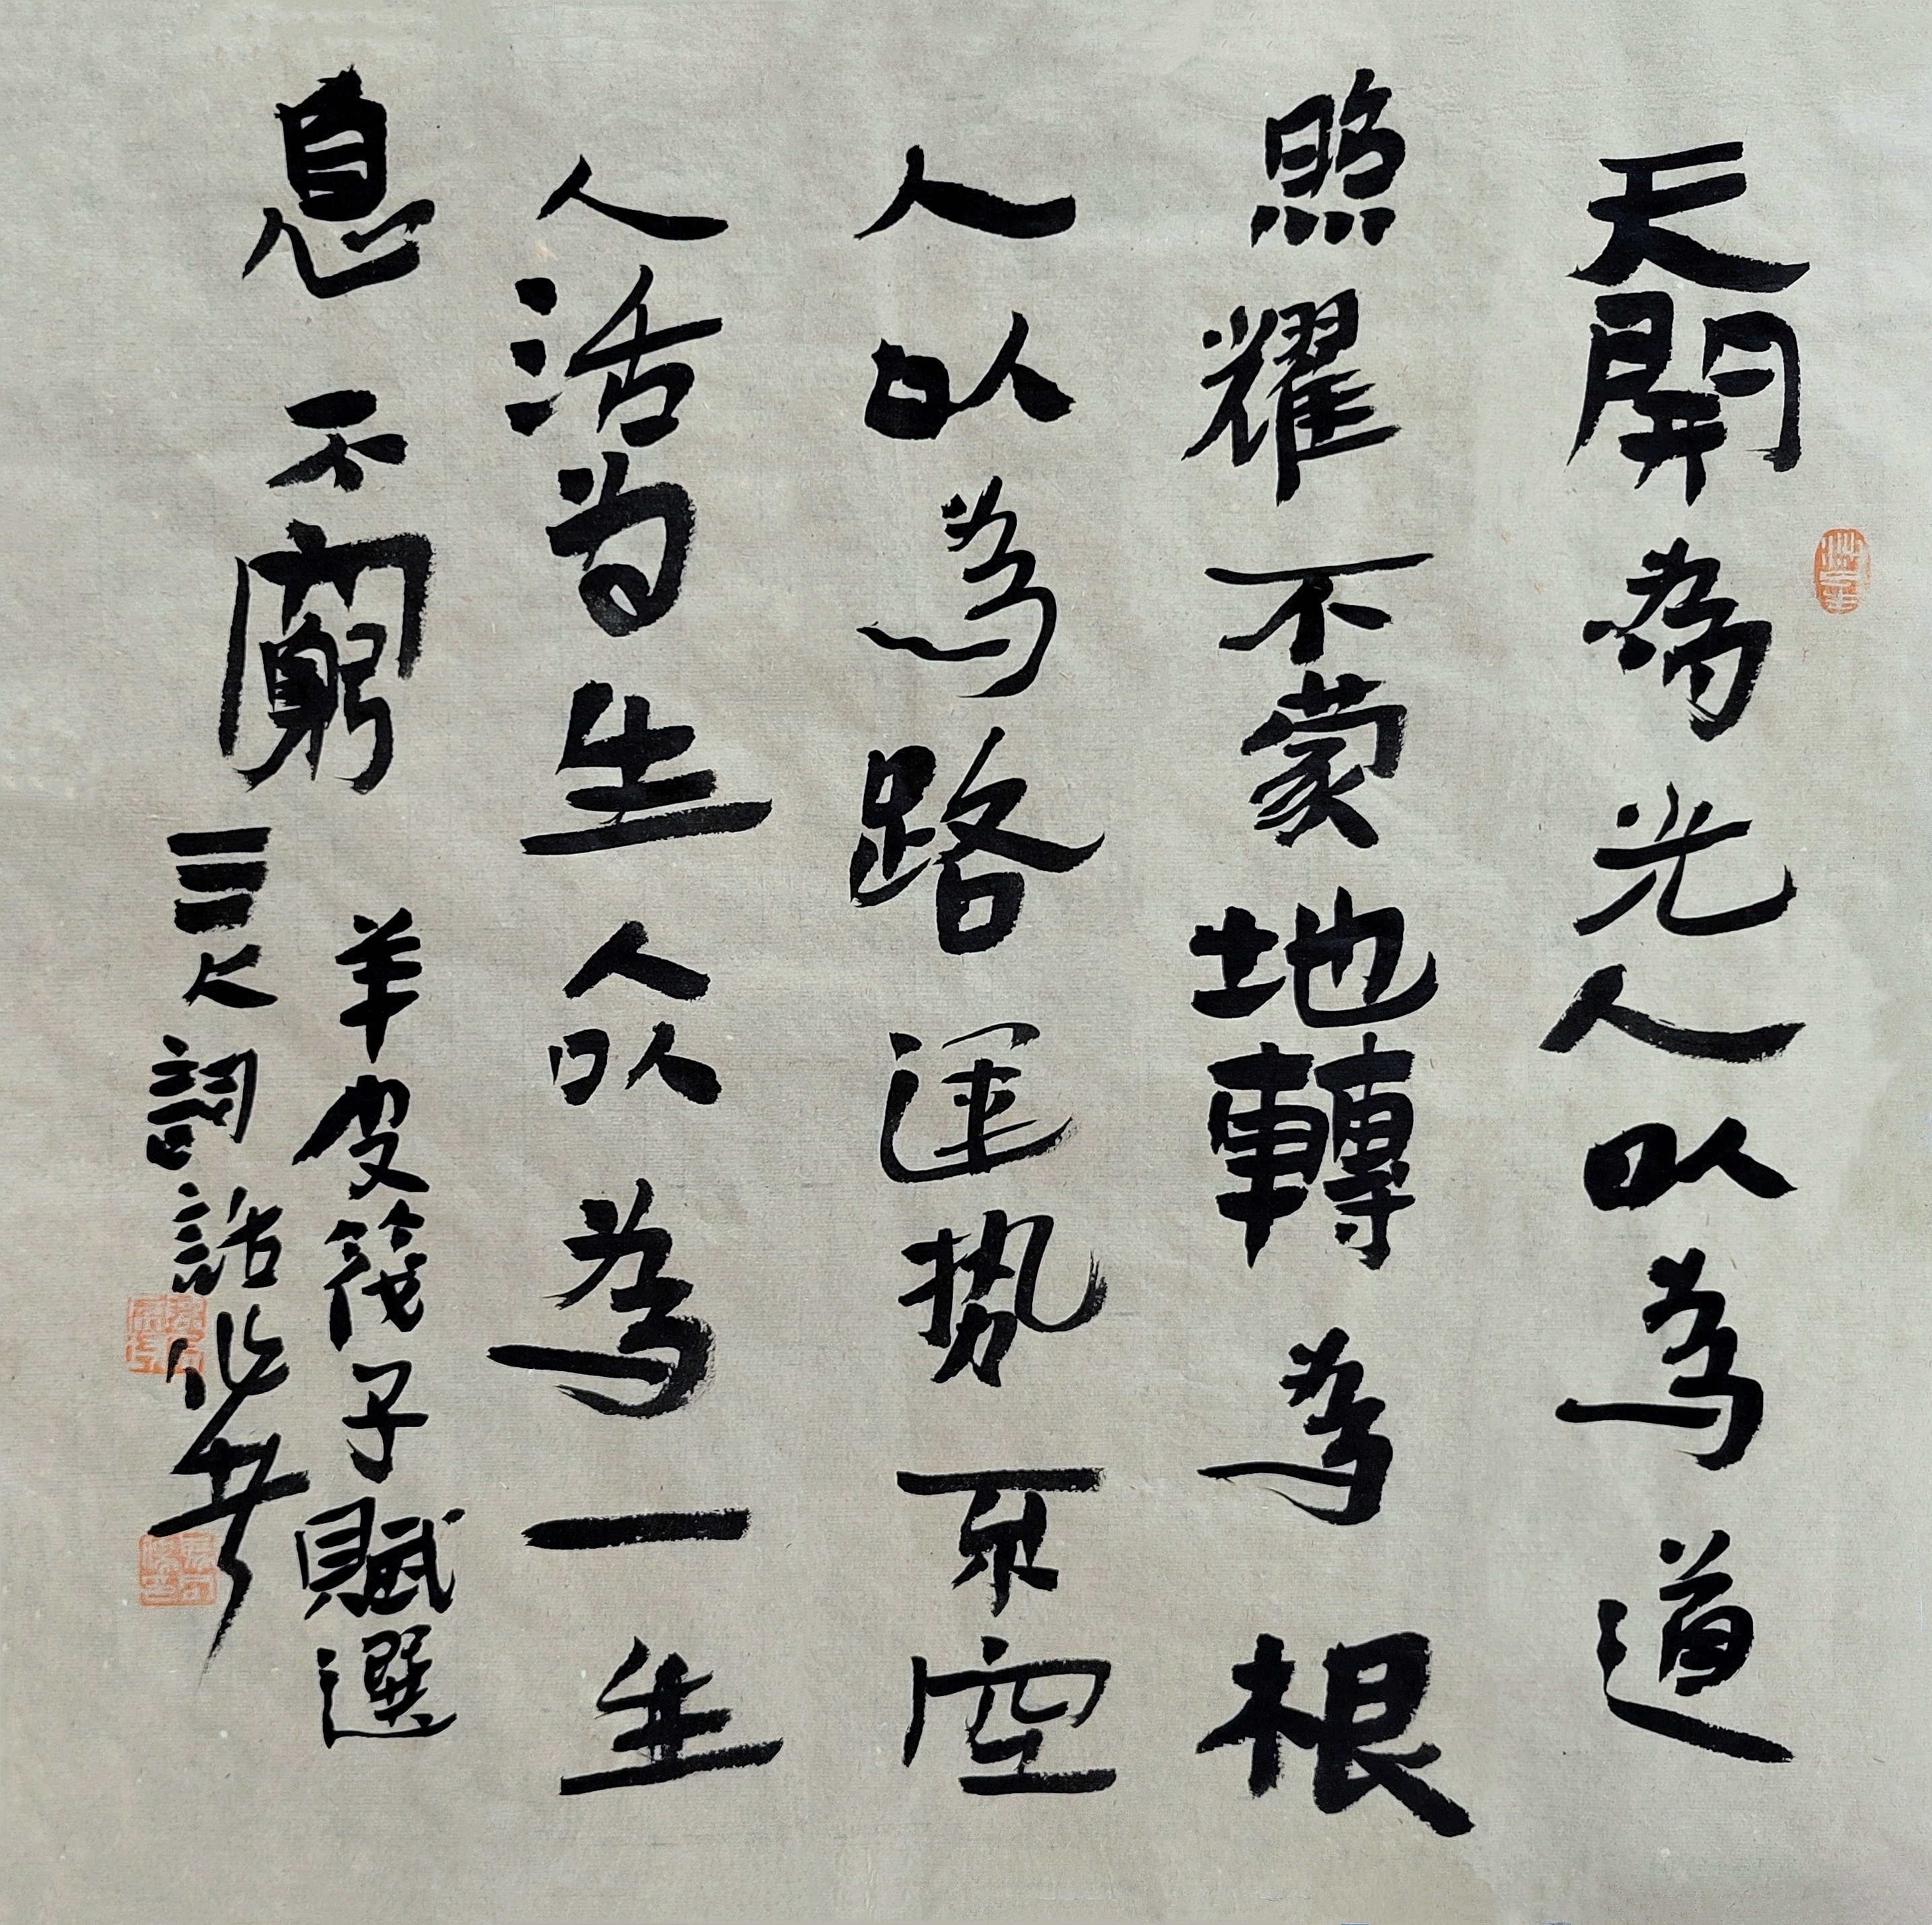 天開為光人以為道
照耀不蒙地轉為根
人以為路運势不空
人活为生人以為一生
息不窮
羊皮筏子賦選
三人詞話作